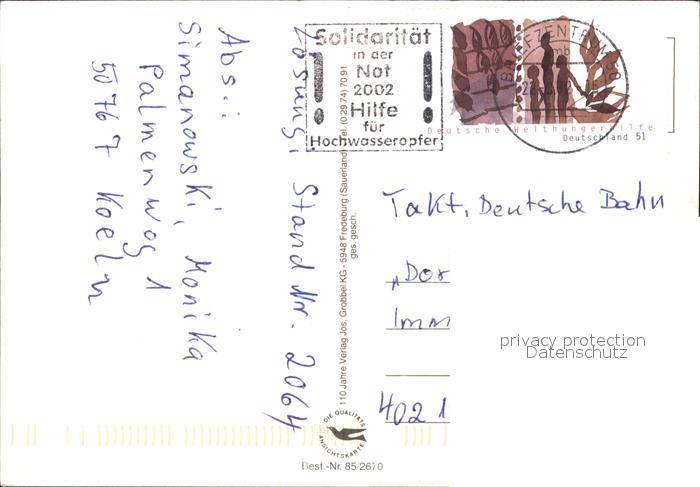 Abs.:
Simanowski, Monika
Palmenweg 1
50767 Koeln
Lösung: Stand Nr. 2064
Solidarität
in der
Not
2002
Hilfe
für
Hochwasseropfer
BRIEFZENTRUM
Deutsche Welthungerhilfe
Deutschland 51
110 Jahre Verlag Jos. Grobbel KG - 5948 Fredeburg (Sauerland) Tel. (02974) 7091
ges. gesch.
Takt, Deutsche Bahn
„Dor
Imm
402 1
privacy protection
Datenschutz
DIE QUALITÄTS
ANSICHTSKARTE
Best.-Nr. 85/2670